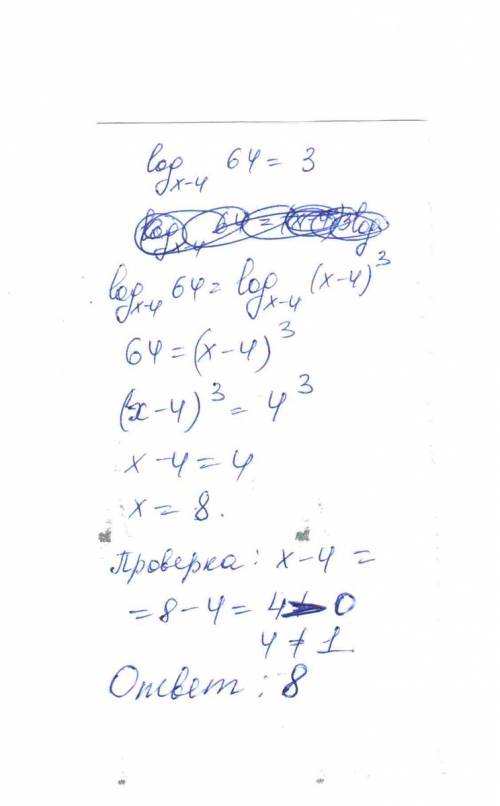 log_{x-4} 64 = 3
log_{x-4} 64 = log_{x-4} (x-4)^3
64 = (x-4)^3
(x-4)^3 = 4^3
x-4 = 4
x = 8.
Проверка: x-4 =
= 8-4 = 4 > 0
4 ≠ 1
Ответ: 8